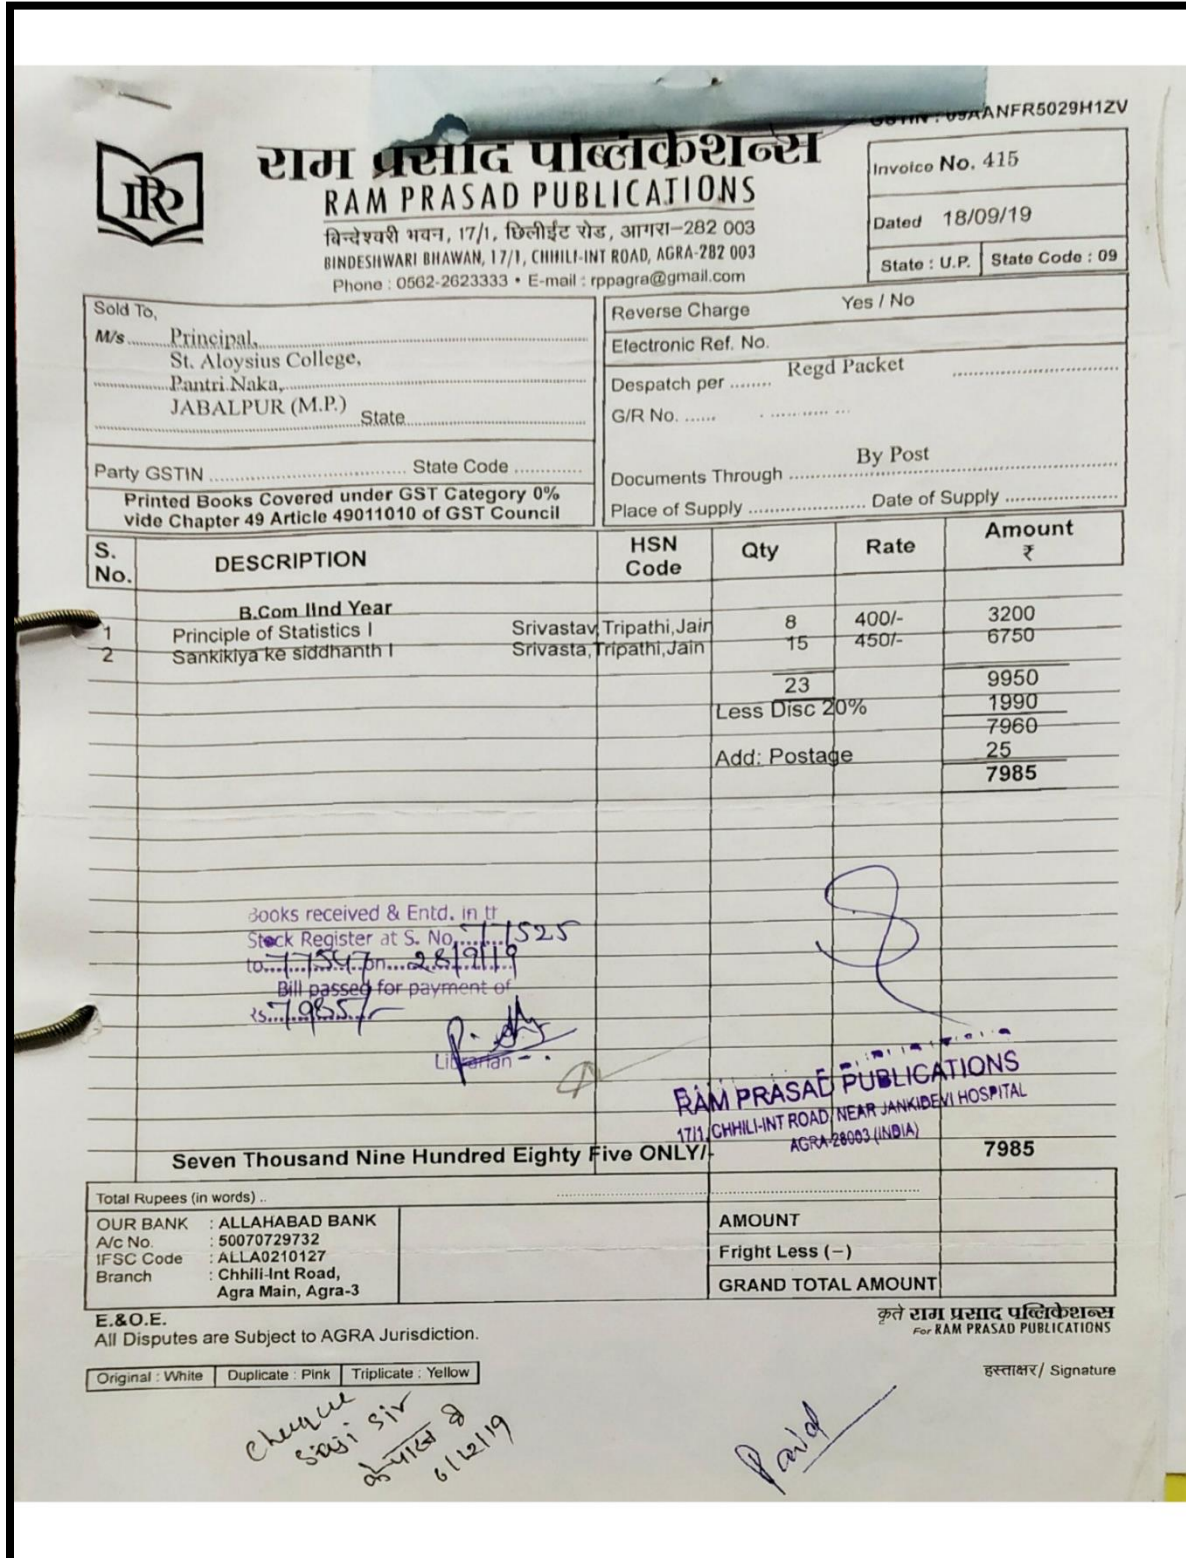 GSTIN : 09AANFR5029H1ZV
राम प्रसाद पब्लिकेशन्स
RAM PRASAD PUBLICATIONS
बिन्देश्वरी भवन, 17/1, छिलीईंट रोड, आगरा-282 003
BINDESHWARI BHAWAN, 17/1, CHHILI-INT ROAD, AGRA-282 003
Phone : 0562-2623333 • E-mail : rppagra@gmail.com
Invoice No. 415
Dated 18/09/19
State : U.P. State Code : 09
Sold To,
M/s Principal,
St. Aloysius College,
Pantri Naka,
JABALPUR (M.P.) State
Party GSTIN State Code
Printed Books Covered under GST Category 0%
vide Chapter 49 Article 49011010 of GST Council
Reverse Charge Yes / No
Electronic Ref. No.
Despatch per Regd Packet
G/R No.
Documents Through By Post
Place of Supply Date of Supply
S. No. DESCRIPTION HSN Code Qty Rate Amount ₹
B.Com IInd Year
1 Principle of Statistics I Srivastav,Tripathi,Jain 8 400/- 3200
2 Sankikiya ke siddhanth I Srivasta,Tripathi,Jain 15 450/- 6750
23 9950
Less Disc 20% 1990
7960
Add: Postage 25
7985
Books received & Entd. in
Stock Register at S. No. 77525
to 77547 on 28/9/19
Bill passed for payment of
Rs. 7985/-
Librarian
RAM PRASAD PUBLICATIONS
17/1, CHHILI-INT ROAD, NEAR JANKIDEVI HOSPITAL
AGRA-28003 (INDIA)
Seven Thousand Nine Hundred Eighty Five ONLY/- 7985
Total Rupees (in words) ..
OUR BANK : ALLAHABAD BANK
A/c No. : 50070729732
IFSC Code : ALLA0210127
Branch : Chhili-Int Road,
Agra Main, Agra-3
AMOUNT
Fright Less (–)
GRAND TOTAL AMOUNT
E.&O.E.
All Disputes are Subject to AGRA Jurisdiction.
कृते राम प्रसाद पब्लिकेशन्स
For RAM PRASAD PUBLICATIONS
Original : White Duplicate : Pink Triplicate : Yellow
हस्ताक्षर/ Signature
Cheque
Sir
के पास है
6/12/19
Paid